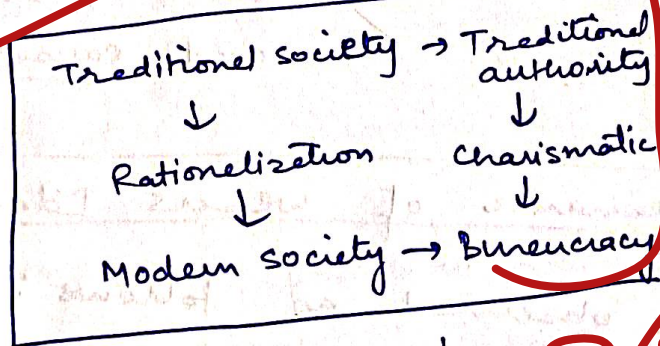 Traditional society → Traditional
authority
↓ ↓
Rationalization Charismatic
↓ ↓
Modern society → Bureucracy